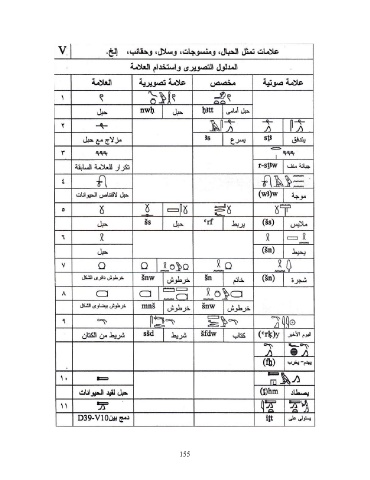 علامات تمثل الحبال، ومنسوجات، وسلال، وحقائب، إلخ. V
المدلول التصويرى واستخدام العلامة
العلامة علامة تصويرية مخصص علامة صوتية
١
حبل حبل nwḥ حبل أمامى ḥȝtt
٢
مزلاج مع حبل يسرع ȝs يتدفق stȝ
٣
تكرار للعلامة السابقة جبانة منف r-stȝw
٤
حبل لاقتناص الحيوانات موجة (wȝ)w
٥
حبل حبل šs يربط ʿrf ملابس (šs)
٦
حبل يحيط (šn)
٧
خرطوش دائرى الشكل خرطوش šnw خاتم šn شجرة (šn)
٨
خرطوش بيضاوى الشكل خرطوش mnš خرطوش šnw
٩
شريط من الكتان شريط sšd كتاب šfdw اليوم الأخير (ʿrḳ)y
يهدم- يخرب (fḫ)
١٠
حبل لقيد الحيوانات يصطاد (ḥ)hm
١١
دمج بين D39-V10 يستولى على
155